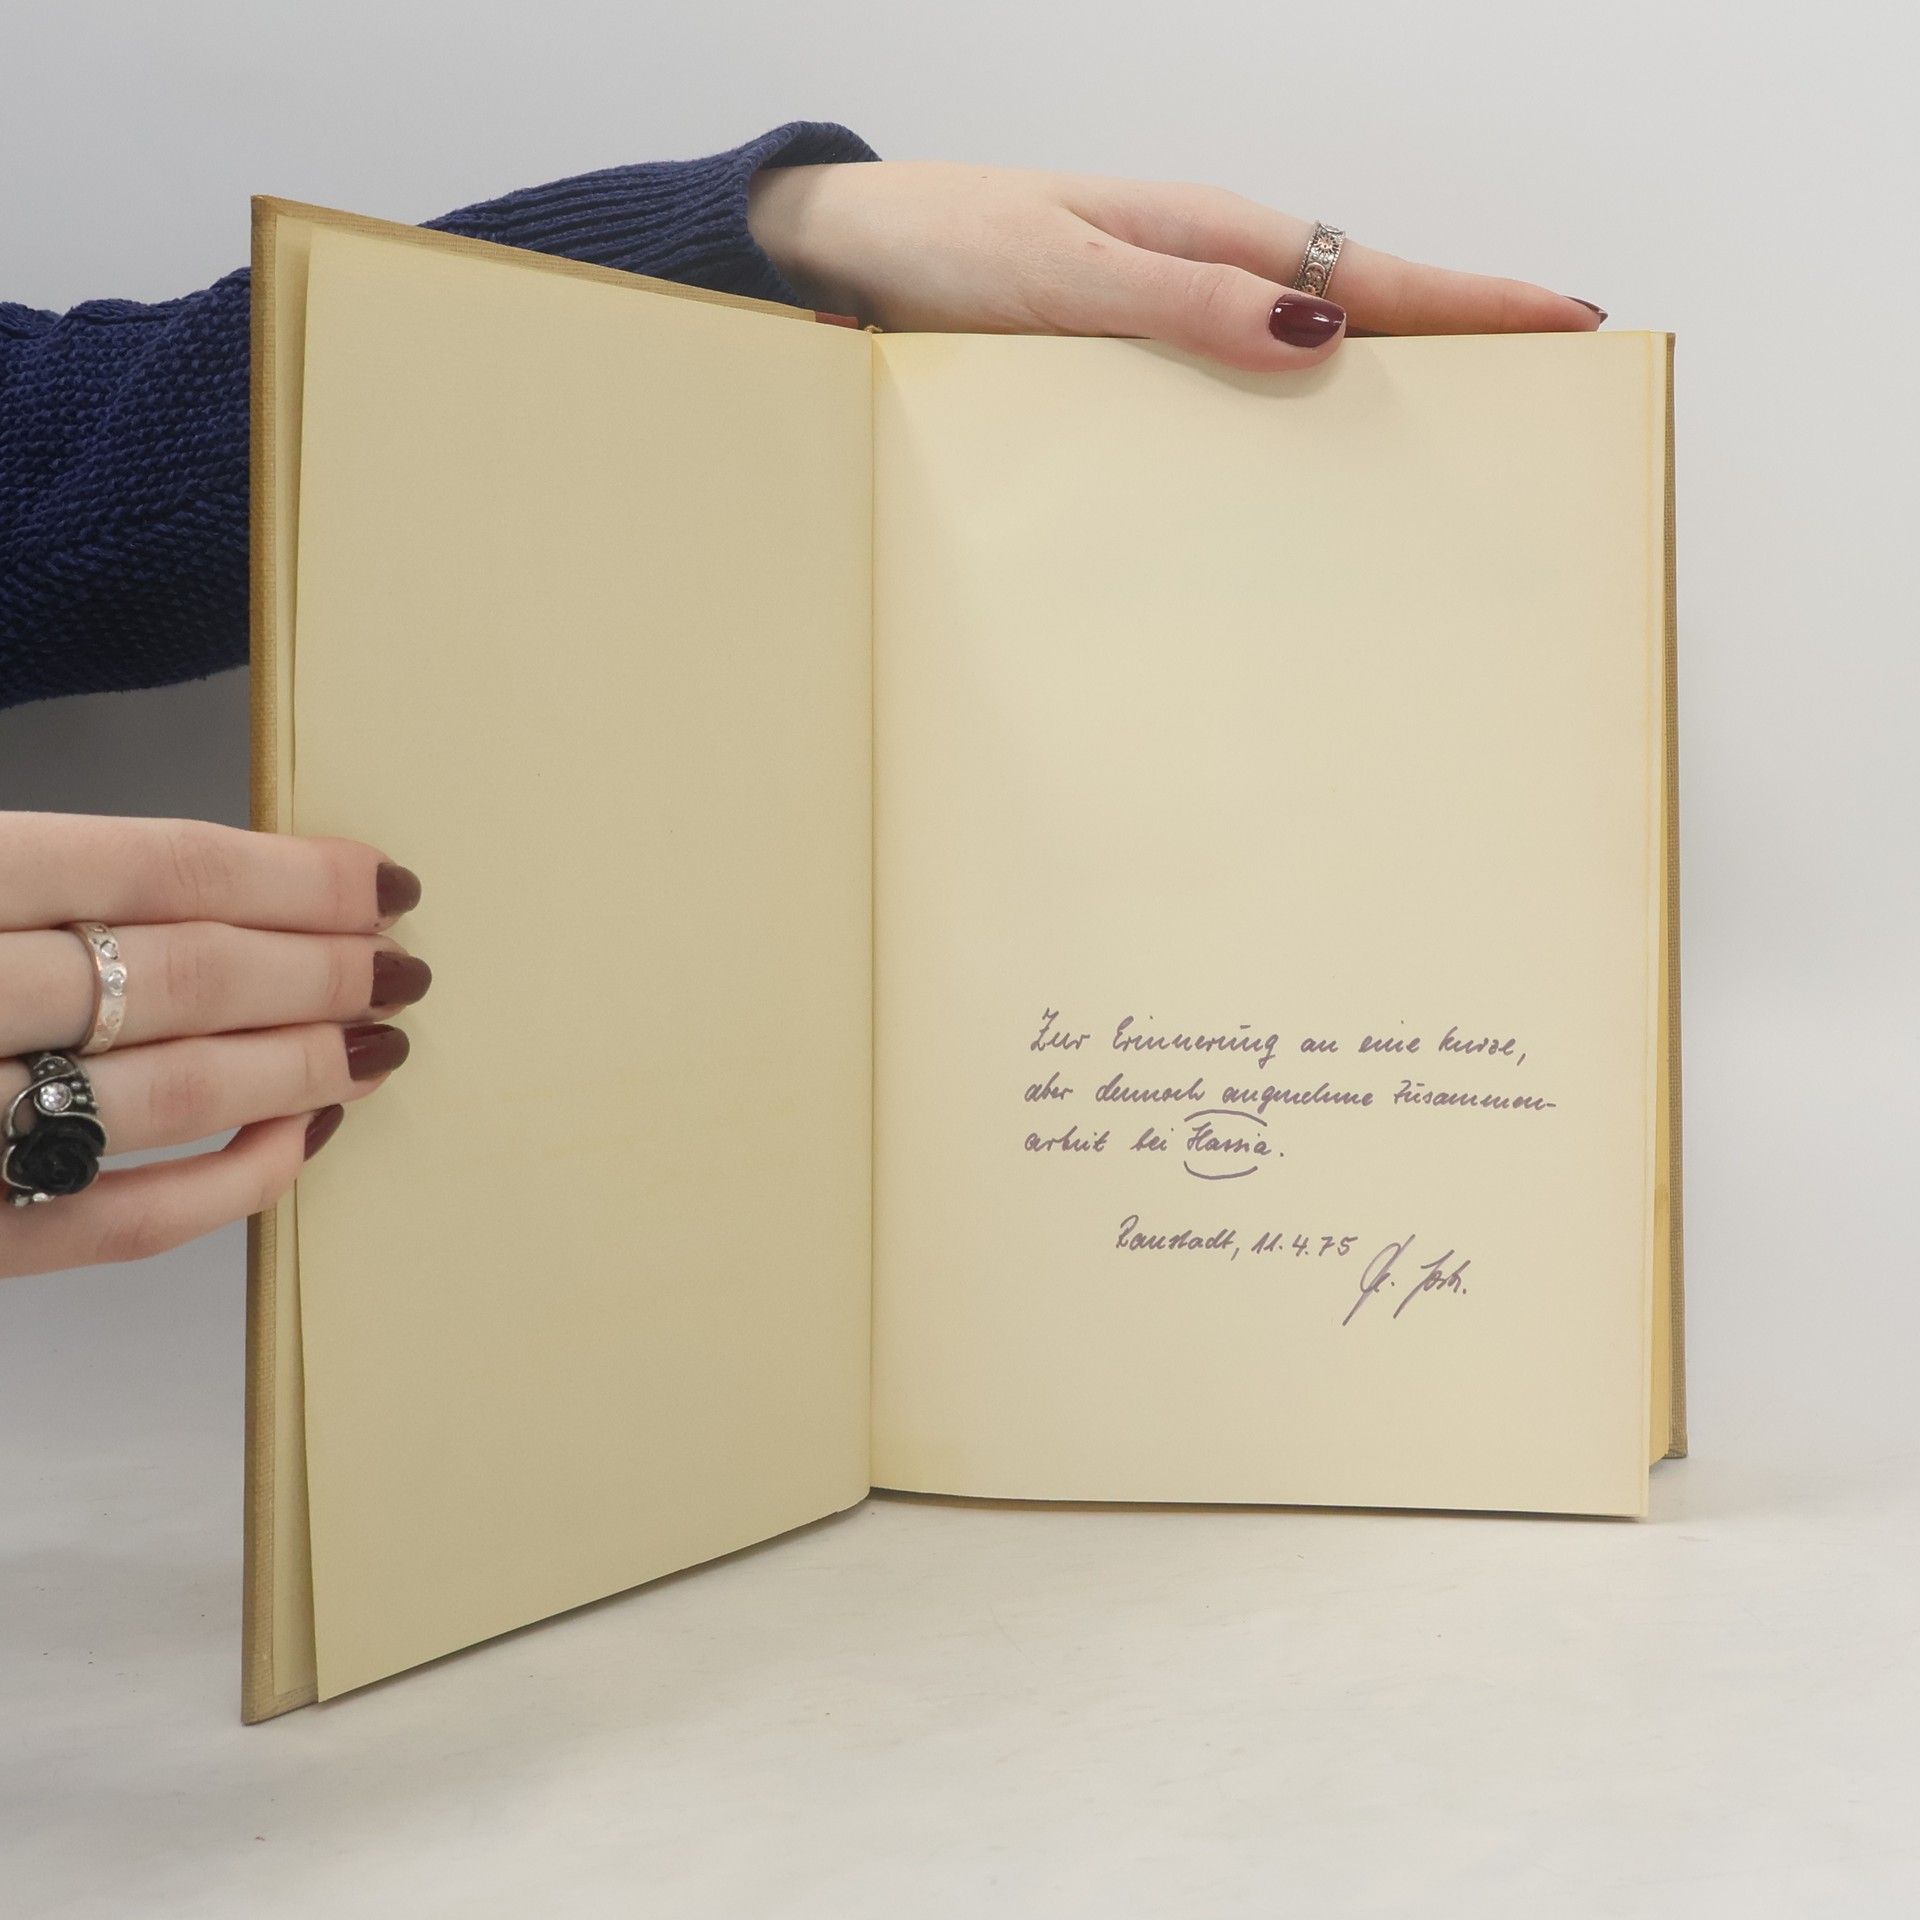 Zur Erinnerung an eine kurze,
aber dennoch angenehme Zusammen-
arbeit bei Hassia.
Ranstadt, 11.4.75